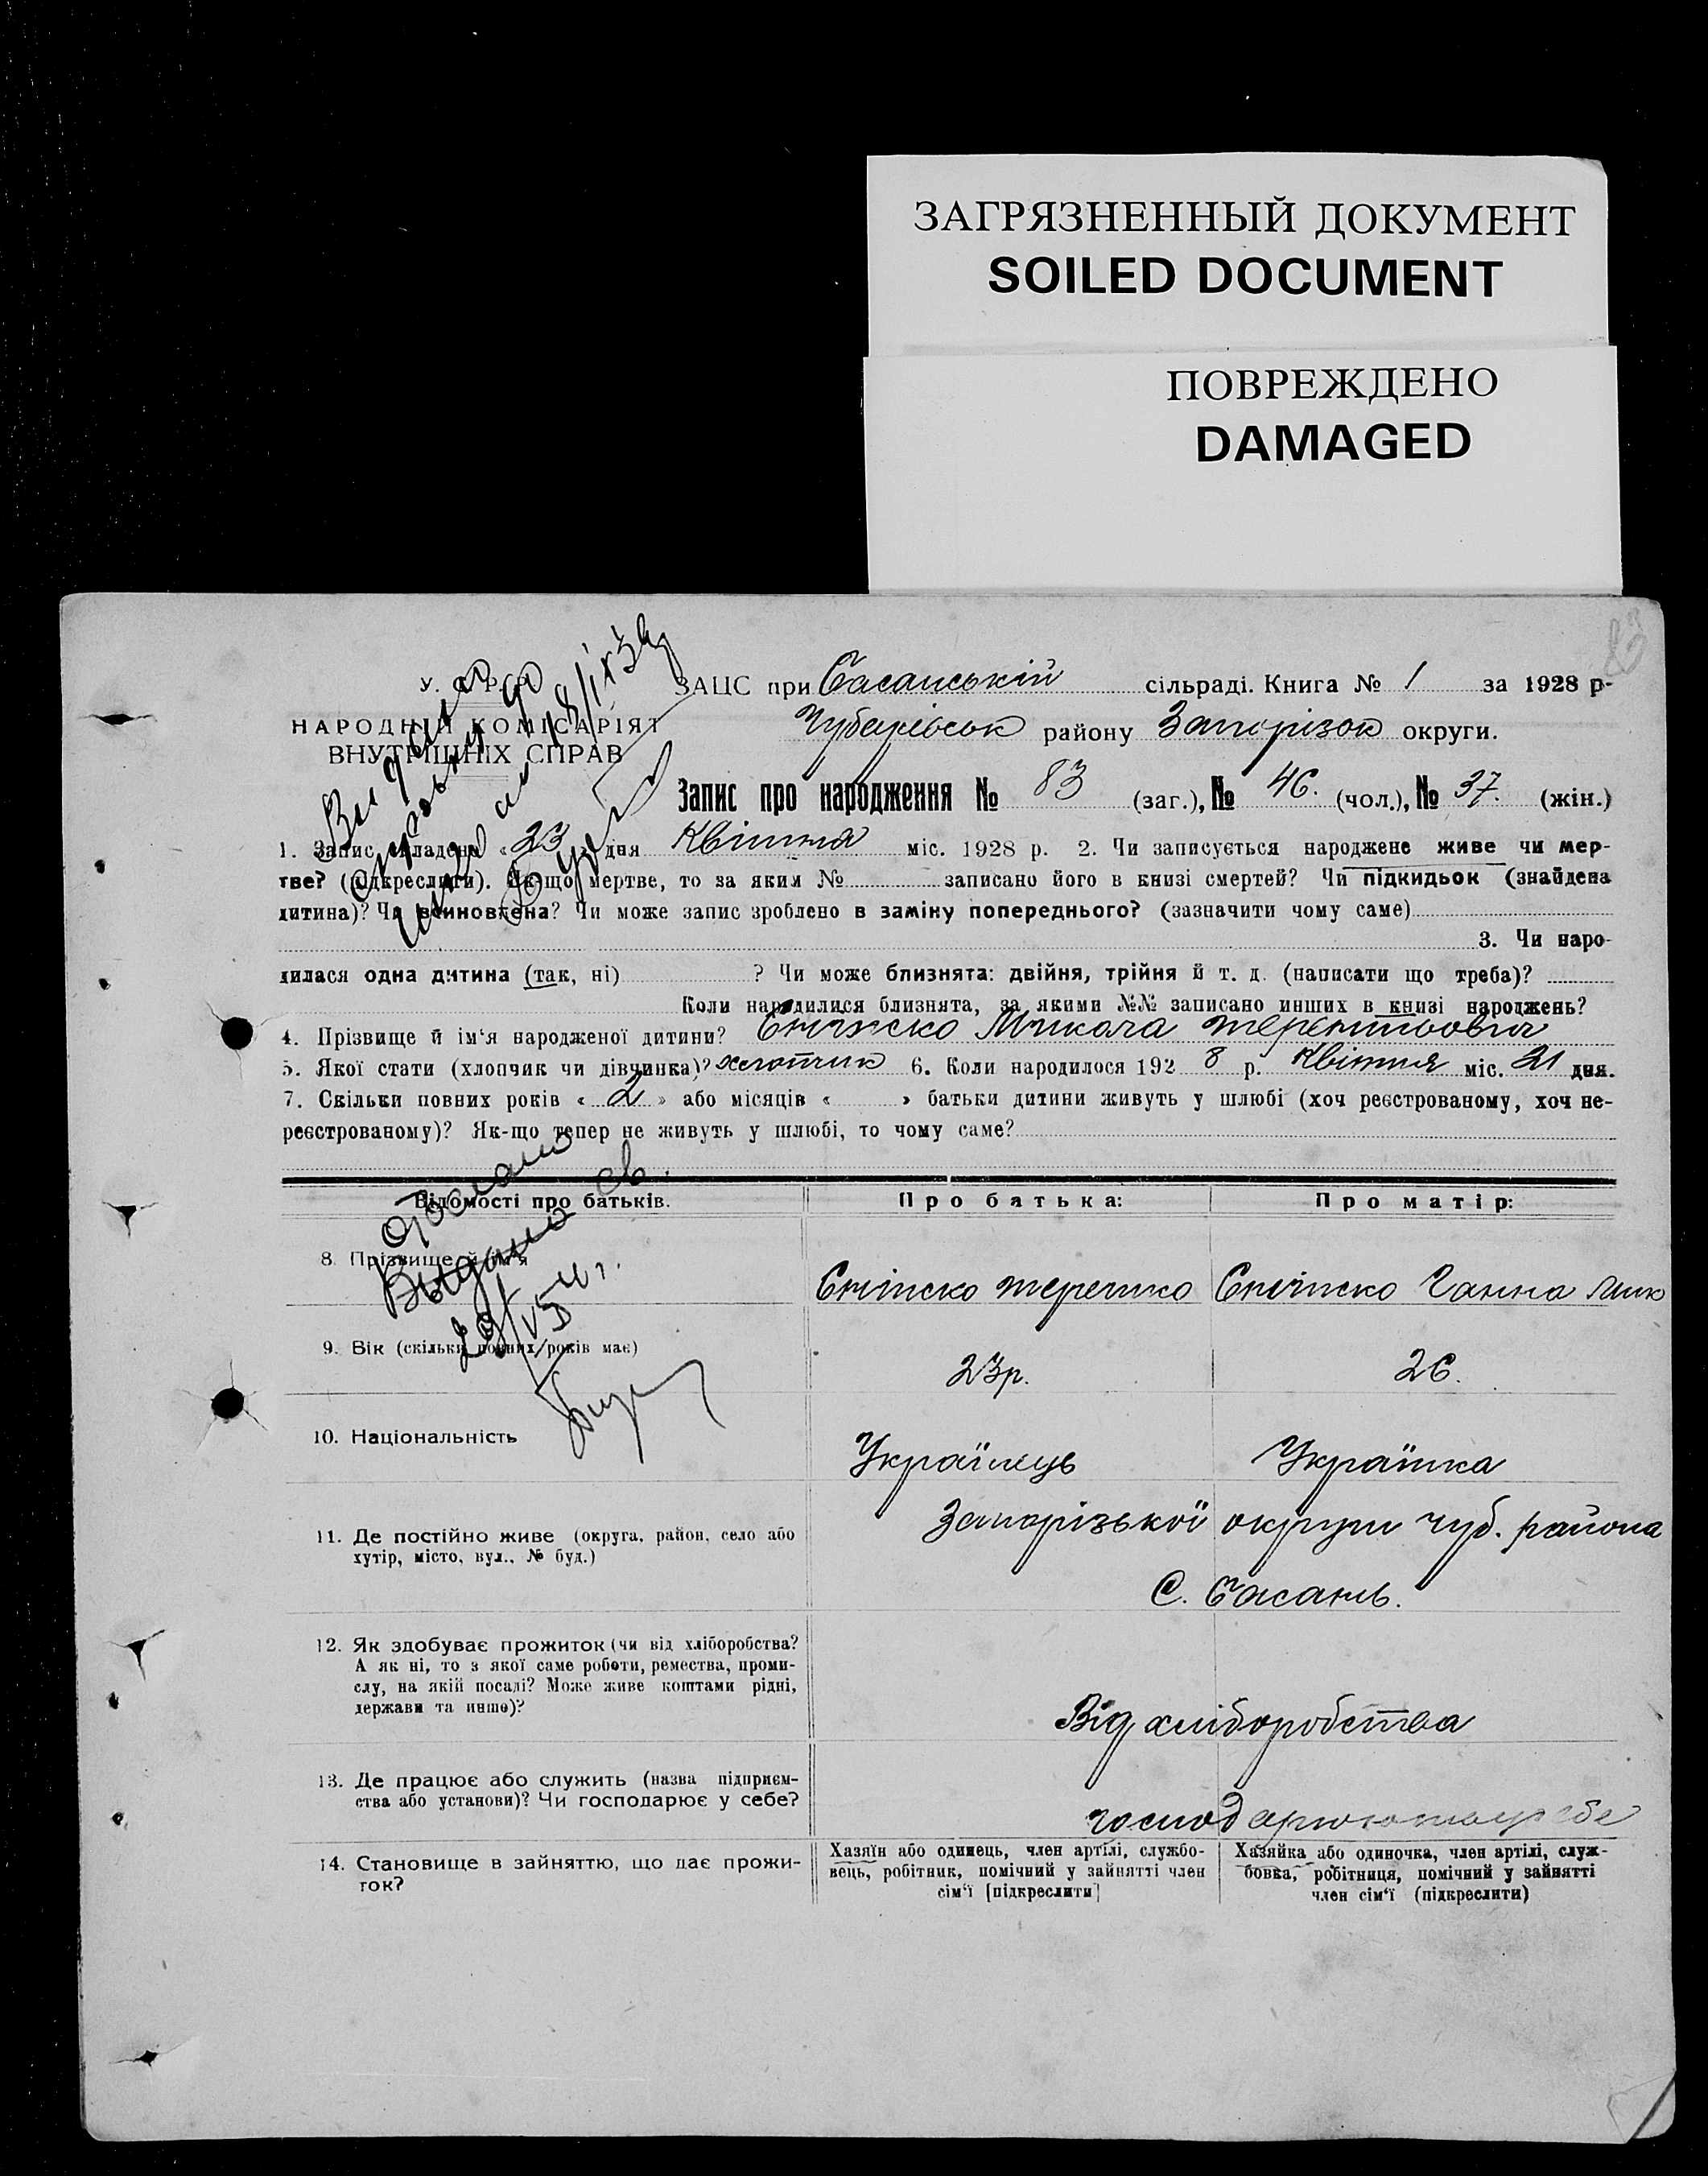 ЗАГРЯЗНЕННЫЙ ДОКУМЕНТ
SOILED DOCUMENT
ПОВРЕЖДЕНО
DAMAGED
83
У. С. Р. Р.
НАРОДНІЙ КОМІСАРІЯТ
ВНУТРІШНІХ СПРАВ
ЗАЦС при Басанській сільраді. Книга № 1 за 1928 р.
Чубарівськ району Запорізок округи.
Запис про народження № 83 (заг.), № 46. (чол.), № 37. (жін.)
1. Запис складено « 23 » дня Квітня міс. 1928 р. 2. Чи записується народжене живе чи мер-
тве? (підкреслити). Як-що мертве, то за яким № записано його в книзі смертей? Чи підкидьок (знайдена
дитина)? Чи всиновлена? Чи може запис зроблено в заміну попереднього? (зазначити чому саме)
3. Чи наро-
дилася одна дитина (так, ні) ? Чи може близнята: двійня, трійня й т. д. (написати що треба)?
Коли народилися близнята, за якими №№ записано инших в книзі народжень?
4. Прізвище й ім'я народженої дитини? Микола
5. Якої стати (хлопчик чи дівчинка)? хлопчик 6. Коли народилося 192 8 р. Квітня міс. 21 дня.
7. Скільки повних років « 2 » або місяців « » батьки дитини живуть у шлюбі (хоч реєстрованому, хоч не-
реєстрованому)? Як-що тепер не живуть у шлюбі, то чому саме?
Відомості про батьків. Про батька: Про матір:
8. Прізвище й ім'я
Терешко Ганна
Выдано св.
9. Вік (скільки повних років має) 23р. 26.
10. Національність Українець Українка
11. Де постійно живе (округа, район, село або
хутір, місто, вул., № буд.)
Запорізької округи Чуб. района
С. Басань.
12. Як здобуває прожиток (чи від хліборобства?
А як ні, то з якої саме роботи, ремества, проми-
слу, на якій посаді? Може живе коштами рідні,
держави та инше)?
Від хліборобства
13. Де працює або служить (назва підприєм-
ства або установи)? Чи господарює у себе?
господарюють у себе
14. Становище в зайняттю, що дає прожи-
ток?
Хазяїн або одинець, член артілі, службо-
вець, робітник, помічний у зайнятті член
сім'ї [підкреслити]
Хазяйка або одиночка, член артілі, служ-
бовка, робітниця, помічний у зайнятті
член сім'ї (підкреслити)